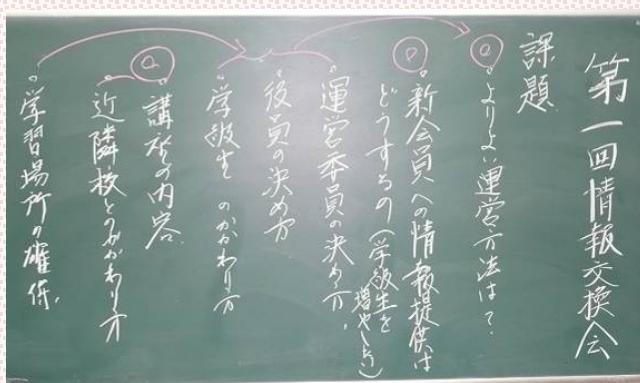 第一回情報交換会
課題
・よりよい運営方法は?
・新会員への情報提供は
どうするの(学級生を
増やしたい)
・運営委員の決め方、
・役員の決め方
・学級生 のかかわり方
・講座の内容
・近隣校とのかかわり方
・学習場所の確保、